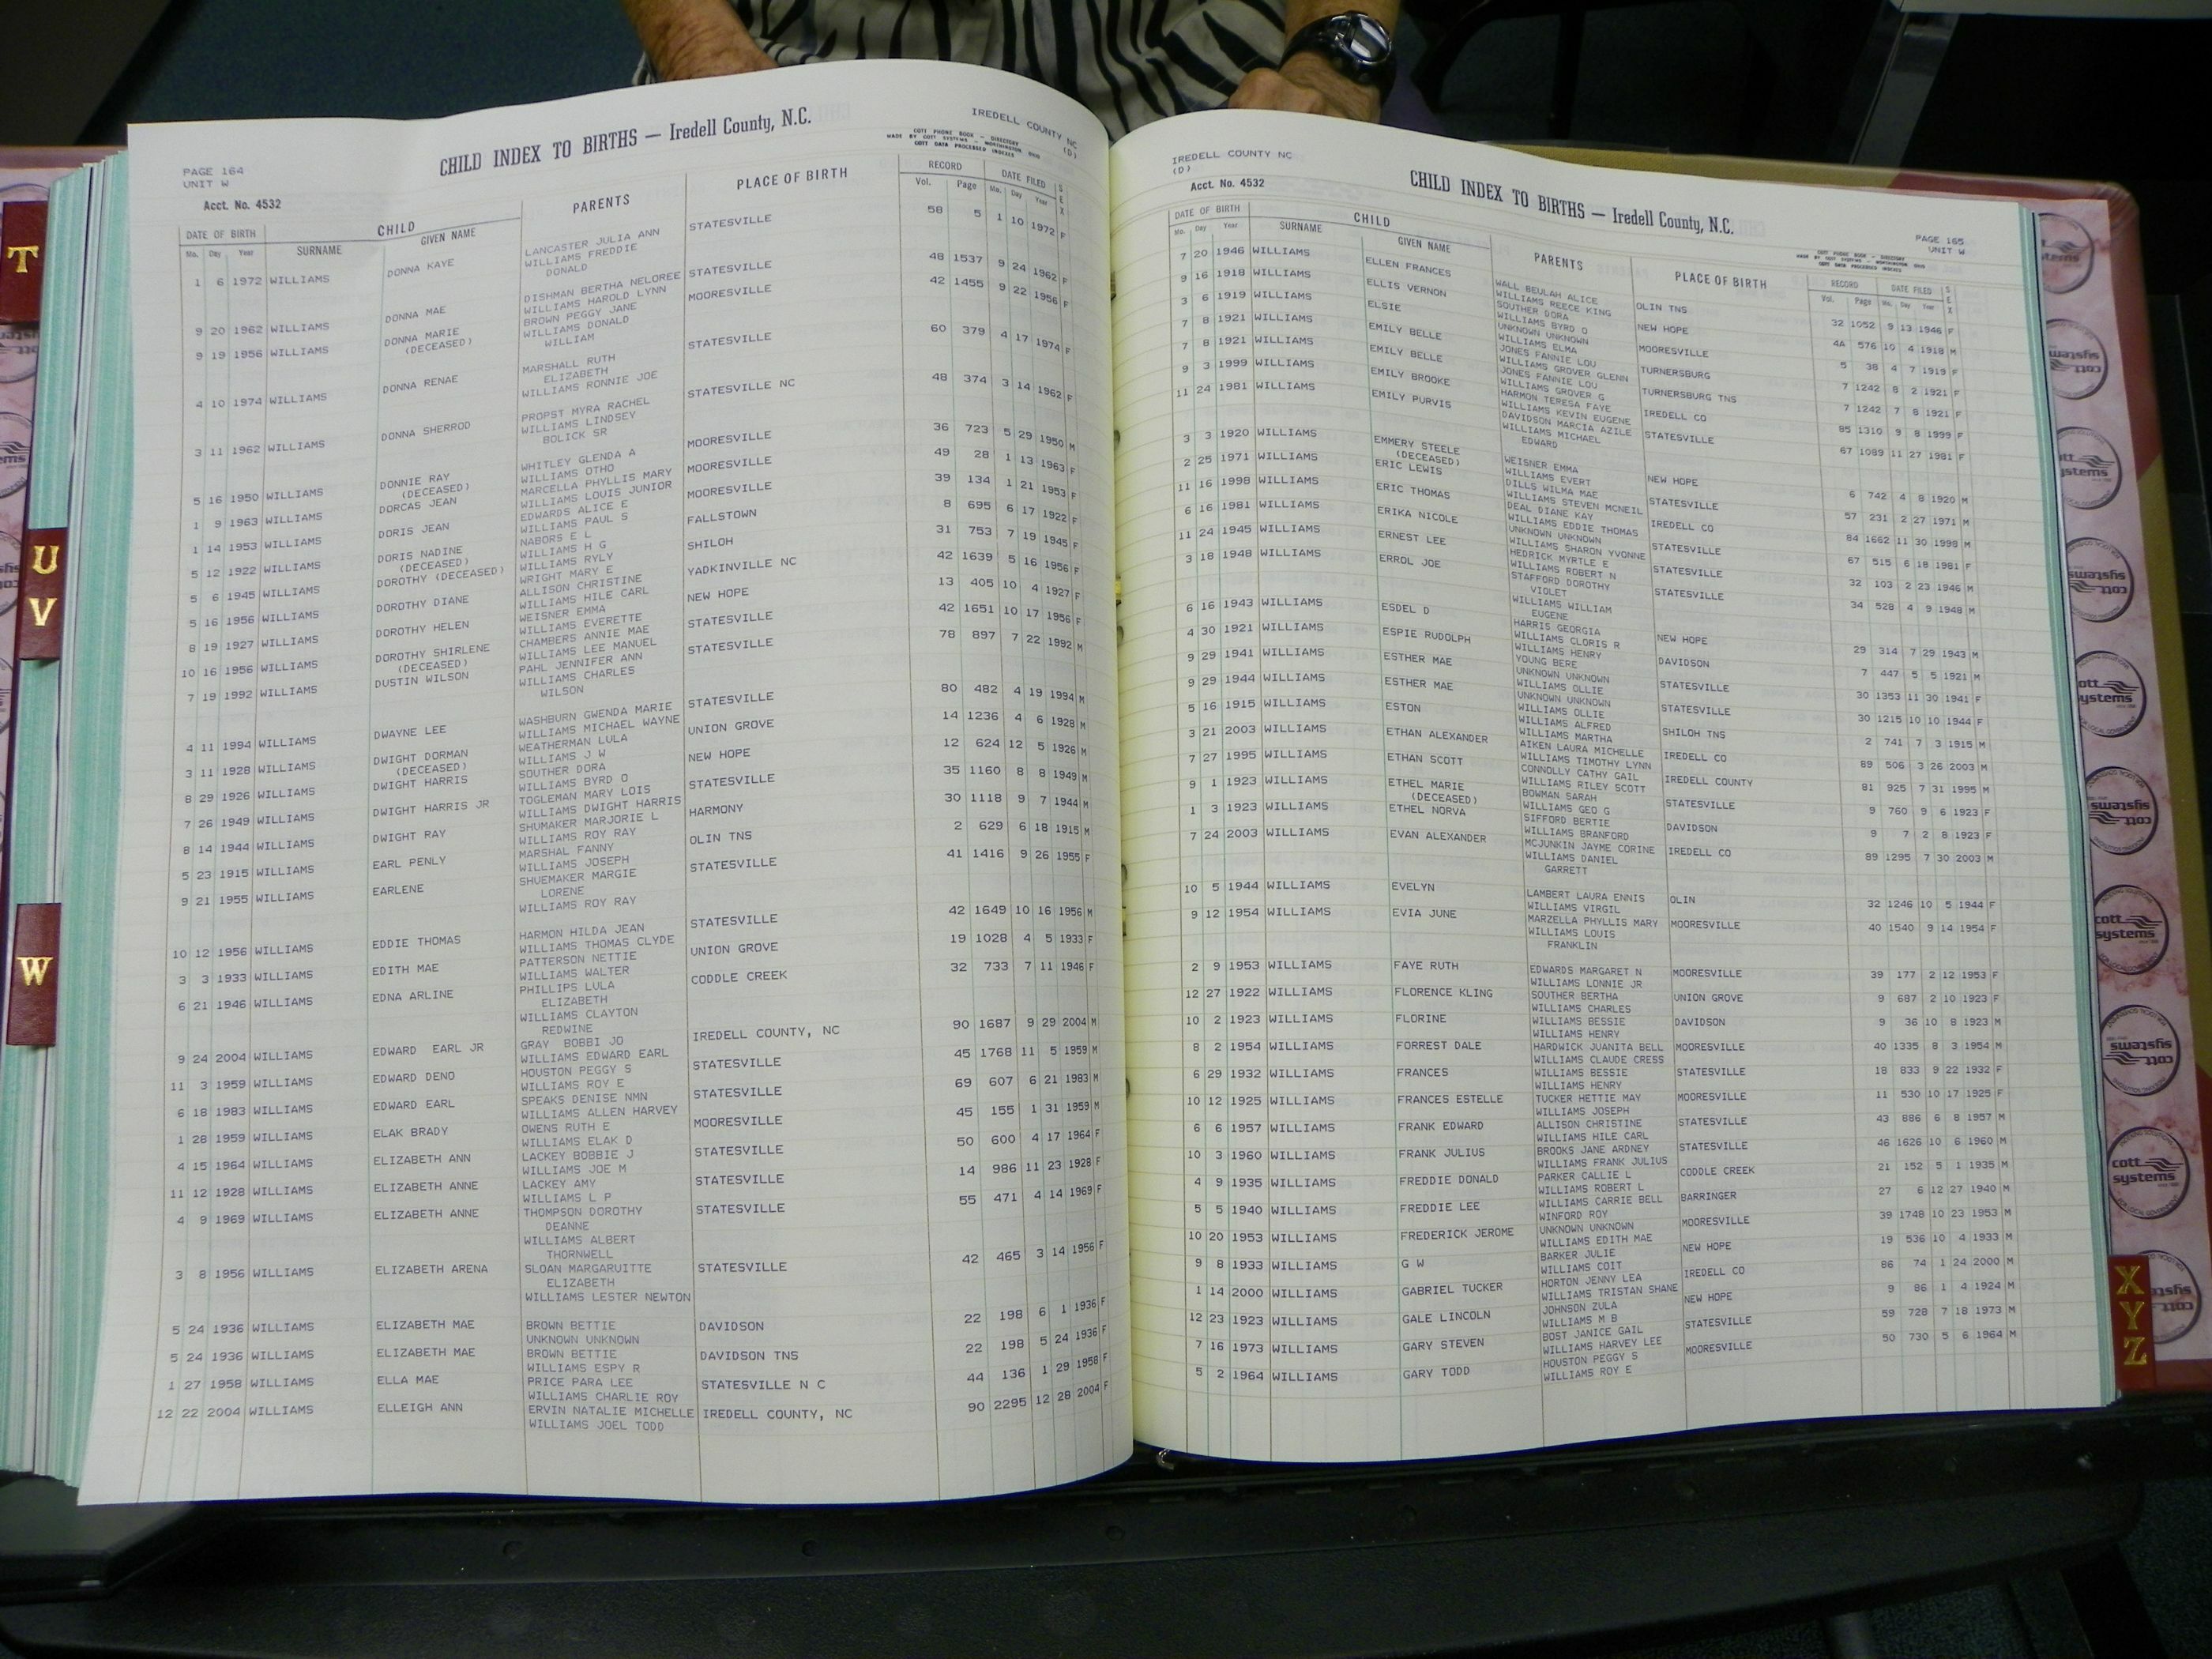 PAGE 164
UNIT W
CHILD INDEX TO BIRTHS — Iredell County, N.C.
IREDELL COUNTY NC
(D)
COTT PHONE BOOK - DIRECTORY
MADE BY COTT SYSTEMS - WORTHINGTON, OHIO
COTT DATA PROCESSED INDEXES
Acct. No. 4532
DATE OF BIRTH CHILD PARENTS PLACE OF BIRTH RECORD DATE FILED SEX
Mo. Day Year SURNAME GIVEN NAME Vol. Page Mo. Day Year
1 6 1972 WILLIAMS DONNA KAYE LANCASTER JULIA ANN STATESVILLE 58 5 1 10 1972 F
WILLIAMS FREDDIE
DONALD
9 20 1962 WILLIAMS DONNA MAE DISHMAN BERTHA NELOREE STATESVILLE 48 1537 9 24 1962 F
WILLIAMS HAROLD LYNN
9 19 1956 WILLIAMS DONNA MARIE BROWN PEGGY JANE MOORESVILLE 42 1455 9 22 1956 F
(DECEASED) WILLIAMS DONALD
WILLIAM
4 10 1974 WILLIAMS DONNA RENAE MARSHALL RUTH STATESVILLE 60 379 4 17 1974 F
ELIZABETH
WILLIAMS RONNIE JOE
3 11 1962 WILLIAMS DONNA SHERROD PROPST MYRA RACHEL STATESVILLE NC 48 374 3 14 1962 F
WILLIAMS LINDSEY
BOLICK SR
5 16 1950 WILLIAMS DONNIE RAY WHITLEY GLENDA A MOORESVILLE 36 723 5 29 1950 M
(DECEASED) WILLIAMS OTHO
1 9 1963 WILLIAMS DORCAS JEAN MARCELLA PHYLLIS MARY MOORESVILLE 49 28 1 13 1963 F
WILLIAMS LOUIS JUNIOR
1 14 1953 WILLIAMS DORIS JEAN EDWARDS ALICE E MOORESVILLE 39 134 1 21 1953 F
WILLIAMS PAUL S
5 12 1922 WILLIAMS DORIS NADINE NABORS E L FALLSTOWN 8 695 6 17 1922 F
(DECEASED) WILLIAMS H G
5 6 1945 WILLIAMS DOROTHY (DECEASED) WILLIAMS RYLY SHILOH 31 753 7 19 1945 F
WRIGHT MARY E
5 16 1956 WILLIAMS DOROTHY DIANE ALLISON CHRISTINE YADKINVILLE NC 42 1639 5 16 1956 F
WILLIAMS HILE CARL
8 19 1927 WILLIAMS DOROTHY HELEN WEISNER EMMA NEW HOPE 13 405 10 4 1927 F
WILLIAMS EVERETTE
10 16 1956 WILLIAMS DOROTHY SHIRLENE CHAMBERS ANNIE MAE STATESVILLE 42 1651 10 17 1956 F
(DECEASED) WILLIAMS LEE MANUEL
7 19 1992 WILLIAMS DUSTIN WILSON PAHL JENNIFER ANN STATESVILLE 78 897 7 22 1992 M
WILLIAMS CHARLES
WILSON
4 11 1994 WILLIAMS DWAYNE LEE WASHBURN GWENDA MARIE STATESVILLE 80 482 4 19 1994 M
WILLIAMS MICHAEL WAYNE
3 11 1928 WILLIAMS DWIGHT DORMAN WEATHERMAN LULA UNION GROVE 14 1236 4 6 1928 M
(DECEASED) WILLIAMS J W
8 29 1926 WILLIAMS DWIGHT HARRIS SOUTHER DORA NEW HOPE 12 624 12 5 1926 M
WILLIAMS BYRD O
7 26 1949 WILLIAMS DWIGHT HARRIS JR TOGLEMAN MARY LOIS STATESVILLE 35 1160 8 8 1949 M
WILLIAMS DWIGHT HARRIS
8 14 1944 WILLIAMS DWIGHT RAY SHUMAKER MARJORIE L HARMONY 30 1118 9 7 1944 M
WILLIAMS ROY RAY
5 23 1915 WILLIAMS EARL PENLY MARSHAL FANNY OLIN TNS 2 629 6 18 1915 M
WILLIAMS JOSEPH
9 21 1955 WILLIAMS EARLENE SHUEMAKER MARGIE STATESVILLE 41 1416 9 26 1955 F
LORENE
WILLIAMS ROY RAY
10 12 1956 WILLIAMS EDDIE THOMAS HARMON HILDA JEAN STATESVILLE 42 1649 10 16 1956 M
WILLIAMS THOMAS CLYDE
3 3 1933 WILLIAMS EDITH MAE PATTERSON NETTIE UNION GROVE 19 1028 4 5 1933 F
WILLIAMS WALTER
6 21 1946 WILLIAMS EDNA ARLINE PHILLIPS LULA CODDLE CREEK 32 733 7 11 1946 F
ELIZABETH
WILLIAMS CLAYTON
REDWINE
9 24 2004 WILLIAMS EDWARD EARL JR GRAY BOBBI JO IREDELL COUNTY, NC 90 1687 9 29 2004 M
WILLIAMS EDWARD EARL
11 3 1959 WILLIAMS EDWARD DENO HOUSTON PEGGY S STATESVILLE 45 1768 11 5 1959 M
WILLIAMS ROY E
6 18 1983 WILLIAMS EDWARD EARL SPEAKS DENISE NMN STATESVILLE 69 607 6 21 1983 M
WILLIAMS ALLEN HARVEY
1 28 1959 WILLIAMS ELAK BRADY OWENS RUTH E MOORESVILLE 45 155 1 31 1959 M
WILLIAMS ELAK D
4 15 1964 WILLIAMS ELIZABETH ANN LACKEY BOBBIE J STATESVILLE 50 600 4 17 1964 F
WILLIAMS JOE M
11 12 1928 WILLIAMS ELIZABETH ANNE LACKEY AMY STATESVILLE 14 986 11 23 1928 F
WILLIAMS L P
4 9 1969 WILLIAMS ELIZABETH ANNE THOMPSON DOROTHY STATESVILLE 55 471 4 14 1969 F
DEANNE
WILLIAMS ALBERT
THORNWELL
3 8 1956 WILLIAMS ELIZABETH ARENA SLOAN MARGARUITTE STATESVILLE 42 465 3 14 1956 F
ELIZABETH
WILLIAMS LESTER NEWTON
5 24 1936 WILLIAMS ELIZABETH MAE BROWN BETTIE DAVIDSON 22 198 6 1 1936 F
UNKNOWN UNKNOWN
5 24 1936 WILLIAMS ELIZABETH MAE BROWN BETTIE DAVIDSON TNS 22 198 5 24 1936 F
WILLIAMS ESPY R
1 27 1958 WILLIAMS ELLA MAE PRICE PARA LEE STATESVILLE N C 44 136 1 29 1958 F
WILLIAMS CHARLIE ROY
12 22 2004 WILLIAMS ELLEIGH ANN ERVIN NATALIE MICHELLE IREDELL COUNTY, NC 90 2295 12 28 2004 F
WILLIAMS JOEL TODD
IREDELL COUNTY NC
(D)
Acct. No. 4532
CHILD INDEX TO BIRTHS — Iredell County, N.C.
PAGE 165
UNIT W
MADE BY COTT SYSTEMS - WORTHINGTON, OHIO
COTT DATA PROCESSED INDEXES
DATE OF BIRTH CHILD PARENTS PLACE OF BIRTH RECORD DATE FILED SEX
Mo. Day Year SURNAME GIVEN NAME Vol. Page Mo. Day Year
7 20 1946 WILLIAMS ELLEN FRANCES WALL BEULAH ALICE OLIN TNS 32 1052 9 13 1946 F
WILLIAMS REECE KING
9 16 1918 WILLIAMS ELLIS VERNON SOUTHER DORA NEW HOPE 4A 576 10 4 1918 M
WILLIAMS BYRD O
3 6 1919 WILLIAMS ELSIE UNKNOWN UNKNOWN MOORESVILLE 5 38 4 7 1919 F
WILLIAMS ELMA
7 8 1921 WILLIAMS EMILY BELLE JONES FANNIE LOU TURNERSBURG 7 1242 8 2 1921 F
WILLIAMS GROVER GLENN
7 8 1921 WILLIAMS EMILY BELLE JONES FANNIE LOU TURNERSBURG TNS 7 1242 7 8 1921 F
WILLIAMS GROVER G
9 3 1999 WILLIAMS EMILY BROOKE HARMON TERESA FAYE IREDELL CO 85 1310 9 8 1999 F
WILLIAMS KEVIN EUGENE
11 24 1981 WILLIAMS EMILY PURVIS DAVIDSON MARCIA AZILE STATESVILLE 67 1089 11 27 1981 F
WILLIAMS MICHAEL
EDWARD
3 3 1920 WILLIAMS EMMERY STEELE WEISNER EMMA NEW HOPE 6 742 4 8 1920 M
(DECEASED) WILLIAMS EVERT
2 25 1971 WILLIAMS ERIC LEWIS DILLS WILMA MAE STATESVILLE 57 231 2 27 1971 M
WILLIAMS STEVEN MCNEIL
11 16 1998 WILLIAMS ERIC THOMAS DEAL DIANE KAY IREDELL CO 84 1662 11 30 1998 M
WILLIAMS EDDIE THOMAS
6 16 1981 WILLIAMS ERIKA NICOLE UNKNOWN UNKNOWN STATESVILLE 67 515 6 18 1981 F
WILLIAMS SHARON YVONNE
11 24 1945 WILLIAMS ERNEST LEE HEDRICK MYRTLE E STATESVILLE 32 103 2 23 1946 M
WILLIAMS ROBERT N
3 18 1948 WILLIAMS ERROL JOE STAFFORD DOROTHY STATESVILLE 34 528 4 9 1948 M
VIOLET
WILLIAMS WILLIAM
EUGENE
6 16 1943 WILLIAMS ESDEL D HARRIS GEORGIA NEW HOPE 29 314 7 29 1943 M
WILLIAMS CLORIS R
4 30 1921 WILLIAMS ESPIE RUDOLPH WILLIAMS HENRY DAVIDSON 7 447 5 5 1921 M
YOUNG BERE
9 29 1941 WILLIAMS ESTHER MAE UNKNOWN UNKNOWN STATESVILLE 30 1353 11 30 1941 F
WILLIAMS OLLIE
9 29 1944 WILLIAMS ESTHER MAE UNKNOWN UNKNOWN STATESVILLE 30 1215 10 10 1944 F
WILLIAMS OLLIE
5 16 1915 WILLIAMS ESTON WILLIAMS ALFRED SHILOH TNS 2 741 7 3 1915 M
WILLIAMS MARTHA
3 21 2003 WILLIAMS ETHAN ALEXANDER AIKEN LAURA MICHELLE IREDELL CO 89 506 3 26 2003 M
WILLIAMS TIMOTHY LYNN
7 27 1995 WILLIAMS ETHAN SCOTT CONNOLLY CATHY GAIL IREDELL COUNTY 81 925 7 31 1995 M
WILLIAMS RILEY SCOTT
9 1 1923 WILLIAMS ETHEL MARIE BOWMAN SARAH STATESVILLE 9 760 9 6 1923 F
(DECEASED) WILLIAMS GEO G
1 3 1923 WILLIAMS ETHEL NORVA SIFFORD BERTIE DAVIDSON 9 7 2 8 1923 F
WILLIAMS BRANFORD
7 24 2003 WILLIAMS EVAN ALEXANDER MCJUNKIN JAYME CORINE IREDELL CO 89 1295 7 30 2003 M
WILLIAMS DANIEL
GARRETT
10 5 1944 WILLIAMS EVELYN LAMBERT LAURA ENNIS OLIN 32 1246 10 5 1944 F
WILLIAMS VIRGIL
9 12 1954 WILLIAMS EVIA JUNE MARZELLA PHYLLIS MARY MOORESVILLE 40 1540 9 14 1954 F
WILLIAMS LOUIS
FRANKLIN
2 9 1953 WILLIAMS FAYE RUTH EDWARDS MARGARET N MOORESVILLE 39 177 2 12 1953 F
WILLIAMS LONNIE JR
12 27 1922 WILLIAMS FLORENCE KLING SOUTHER BERTHA UNION GROVE 9 687 2 10 1923 F
WILLIAMS CHARLES
10 2 1923 WILLIAMS FLORINE WILLIAMS BESSIE DAVIDSON 9 36 10 8 1923 M
WILLIAMS HENRY
8 2 1954 WILLIAMS FORREST DALE HARDWICK JUANITA BELL MOORESVILLE 40 1335 8 3 1954 M
WILLIAMS CLAUDE CRESS
6 29 1932 WILLIAMS FRANCES WILLIAMS BESSIE STATESVILLE 18 833 9 22 1932 F
WILLIAMS HENRY
10 12 1925 WILLIAMS FRANCES ESTELLE TUCKER HETTIE MAY MOORESVILLE 11 530 10 17 1925 F
WILLIAMS JOSEPH
6 6 1957 WILLIAMS FRANK EDWARD ALLISON CHRISTINE STATESVILLE 43 886 6 8 1957 M
WILLIAMS HILE CARL
10 3 1960 WILLIAMS FRANK JULIUS BROOKS JANE ARDNEY STATESVILLE 46 1626 10 6 1960 M
WILLIAMS FRANK JULIUS
4 9 1935 WILLIAMS FREDDIE DONALD PARKER CALLIE L CODDLE CREEK 21 152 5 1 1935 M
WILLIAMS ROBERT L
5 5 1940 WILLIAMS FREDDIE LEE WILLIAMS CARRIE BELL BARRINGER 27 6 12 27 1940 M
WINFORD ROY
10 20 1953 WILLIAMS FREDERICK JEROME UNKNOWN UNKNOWN MOORESVILLE 39 1748 10 23 1953 M
WILLIAMS EDITH MAE
9 8 1933 WILLIAMS G W BARKER JULIE NEW HOPE 19 536 10 4 1933 M
WILLIAMS COIT
1 14 2000 WILLIAMS GABRIEL TUCKER HORTON JENNY LEA IREDELL CO 86 74 1 24 2000 M
WILLIAMS TRISTAN SHANE
12 23 1923 WILLIAMS GALE LINCOLN JOHNSON ZULA NEW HOPE 9 86 1 4 1924 M
WILLIAMS M B
7 16 1973 WILLIAMS GARY STEVEN BOST JANICE GAIL STATESVILLE 59 728 7 18 1973 M
WILLIAMS HARVEY LEE
5 2 1964 WILLIAMS GARY TODD HOUSTON PEGGY S MOORESVILLE 50 730 5 6 1964 M
WILLIAMS ROY E
T
U
V
W
X
Y
Z
cott systems